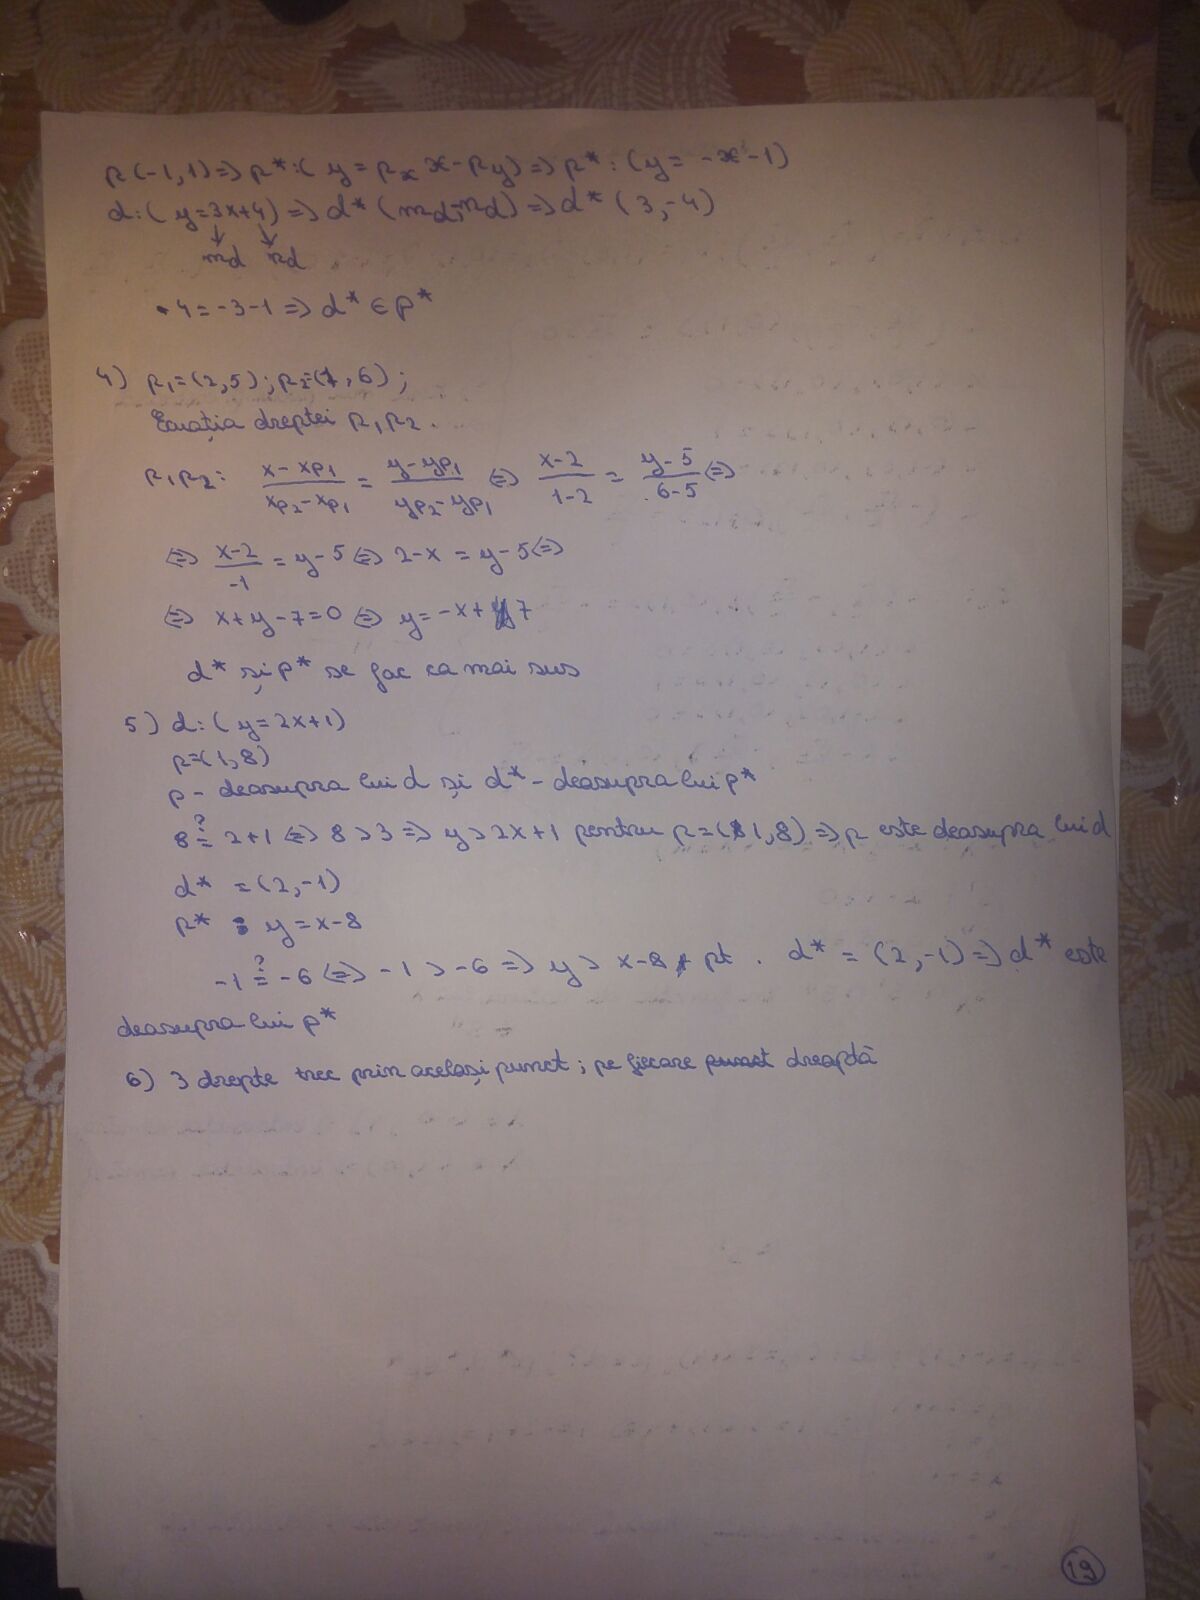 p(-1,1)=> p*:( y = pₓ x - p_y) => p* : (y = -x -1)
d:( y=3x+4) => d* (m_d,-n_d) => d* ( 3, -4)
↓ ↓
m_d n_d
-4 = -3-1 => d* ∈ p*
4) p₁=(2,5) ; p₂=(1, 6) ;
Ecuația dreptei p₁p₂.
p₁p₂: (x - x_p₁)/(x_p₂ - x_p₁) = (y - y_p₁)/(y_p₂ - y_p₁) <=> (x-2)/(1-2) = (y-5)/(6-5) <=>
<=> (x-2)/-1 = y-5 <=> 2-x = y-5 <=>
<=> x+y-7=0 <=> y = -x+7
d* și p* se fac ca mai sus
5) d:( y=2x+1)
p=(1,8)
p - deasupra lui d și d* - deasupra lui p*
8 ≟ 2+1 <=> 8 > 3 => y > 2x+1 pentru p=(1,8) => p este deasupra lui d
d* = (2,-1)
p* : y = x-8
-1 ≟ -6 <=> -1 > -6 => y > x-8, pt. d* = (2,-1) => d* este
deasupra lui p*
6) 3 drepte trec prin același punct ; pe fiecare punct dreaptă
19